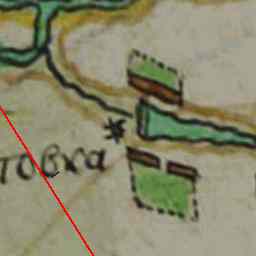 товка